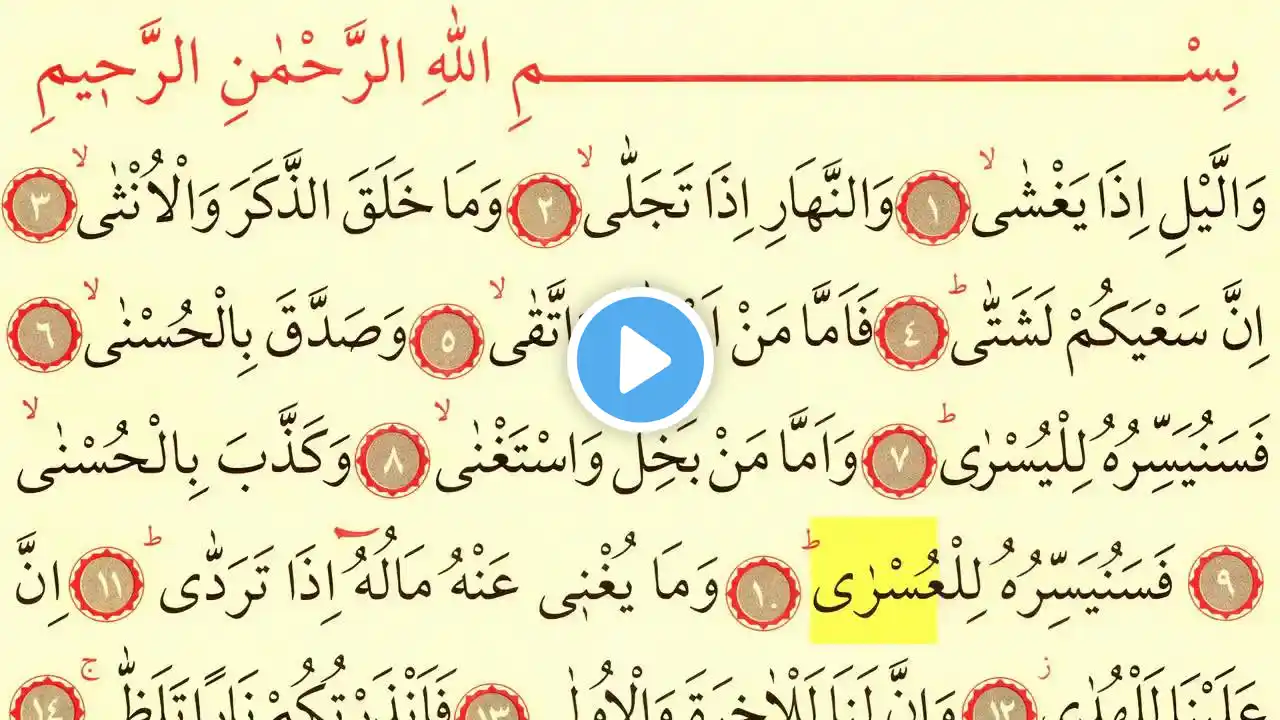 بِسْمِ اللّٰهِ الرَّحْمٰنِ الرَّحٖيمِ
وَالَّيْلِ اِذَا يَغْشٰىۙ ١ وَالنَّهَارِ اِذَا تَجَلّٰىۙ ٢ وَمَا خَلَقَ الذَّكَرَ وَالْاُنْثٰىۙ ٣
اِنَّ سَعْيَكُمْ لَشَتّٰىؕ ٤ فَاَمَّا مَنْ وَاتَّقٰىۙ ٥ وَصَدَّقَ بِالْحُسْنٰىۙ ٦
فَسَنُيَسِّرُهُ لِلْيُسْرٰىؕ ٧ وَاَمَّا مَنْ بَخِلَ وَاسْتَغْنٰىۙ ٨ وَكَذَّبَ بِالْحُسْنٰىۙ
٩ فَسَنُيَسِّرُهُ لِلْعُسْرٰىؕ ١٠ وَمَا يُغْنٖى عَنْهُ مَالُهُٓ اِذَا تَرَدّٰىؕ ١١ اِنَّ
عَلَيْنَا لَلْهُدٰىؗ ١٢ وَاِنَّ لَنَا لَلْاٰخِرَةَ وَالْاُولٰى ١٣ فَاَنْذَرْتُكُمْ نَارًا تَلَظّٰىۚ ١٤